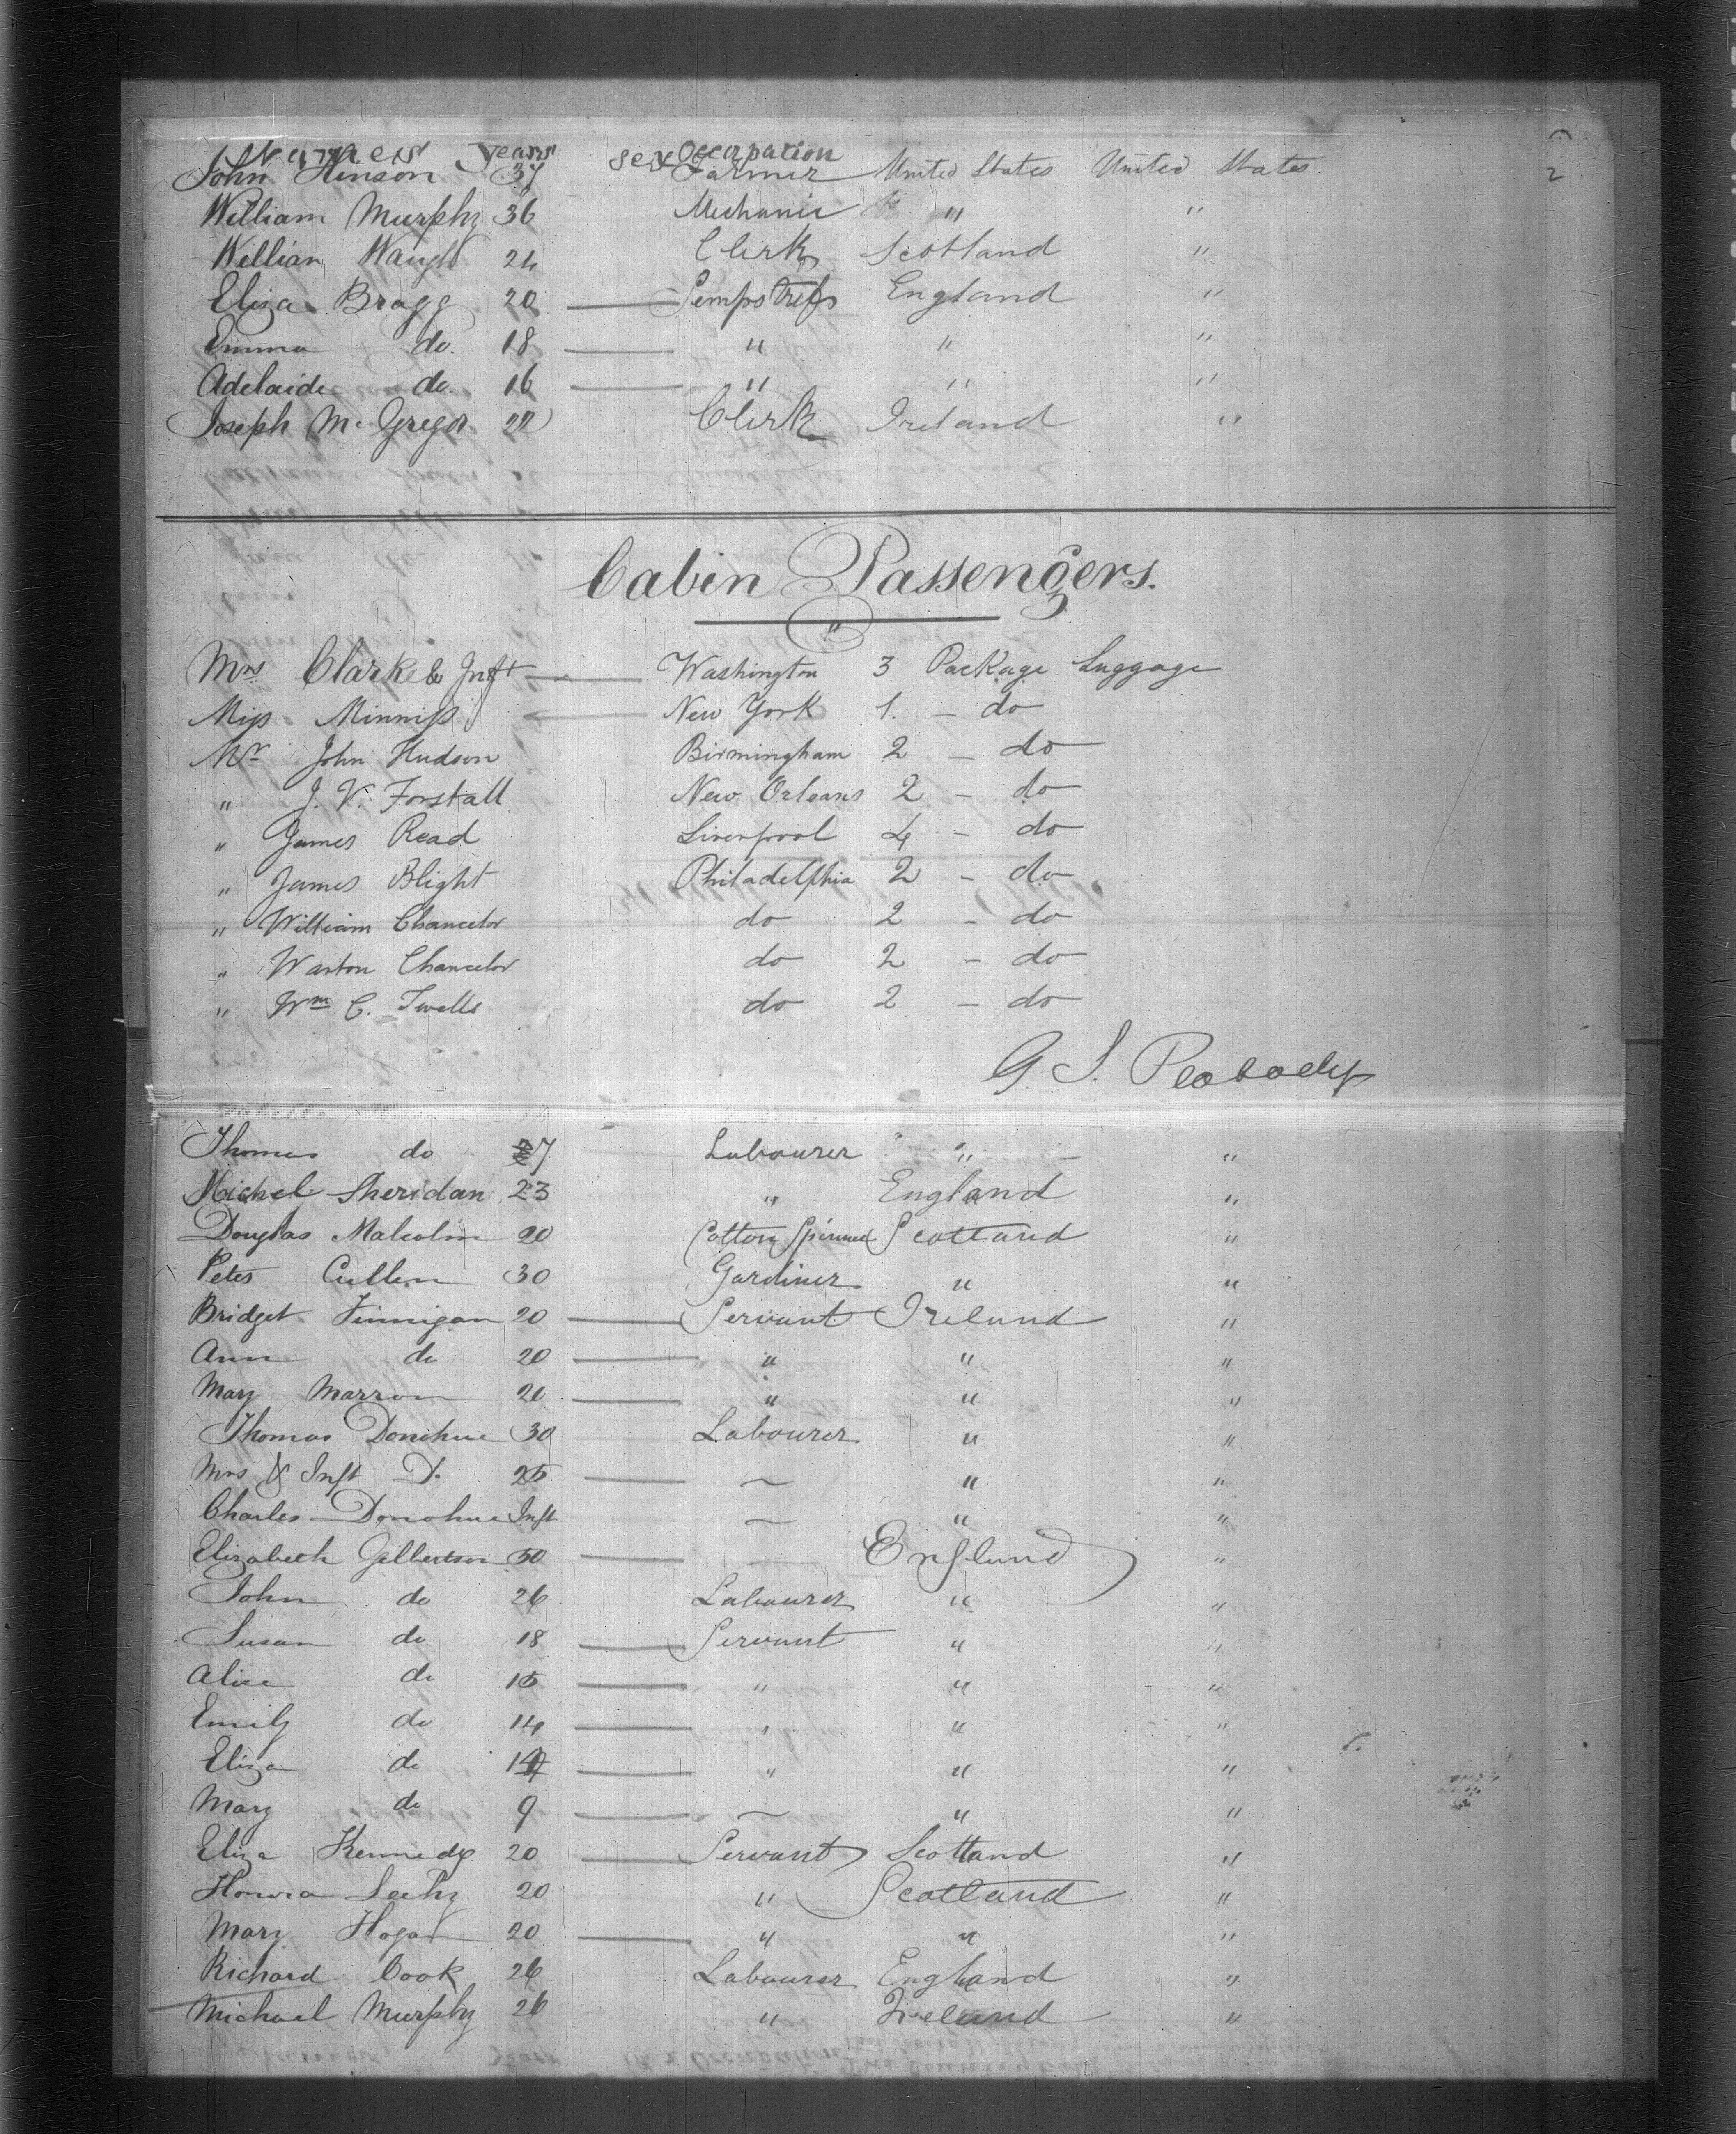 Names years sex Occupation
John Henson 37 Farmer United States United States 2
William Murphy 36 Mechanic " "
Willian Waugh 24 Clerk Scotland "
Eliza Bragg 20 — Sempstress England "
Emma do. 18 — " " "
Adelaide do. 16 — " " "
Joseph McGregor 22 Clerk Ireland "
Cabin Passengers.
Mrs Clarke & Inft — Washington 3 Package Luggage
Miss Minniss — New York 1. – do
Mr John Hudson Birmingham 2 – do
" J. V. Forstall New Orleans 2 – do
" James Read Liverpool 4 – do
" James Blight Philadelphia 2 – do
" William Chancelor do 2 – do
" Warton Chancelor do 2 – do
" Wm C. Twells do 2 – do
G. S. Peabody
Thomas do 27 Labourer " "
Michel Sheridan 23 " England "
Douglas Malcolm 20 Cotton Spinner Scotland "
Peter Cullen 30 Gardiner " "
Bridget Finnigan 20 — Servant Ireland "
Ann do 20 — " " "
Mary Marron 20 — " " "
Thomas Donohue 30 Labourer " "
Mrs & Inft D. 25 — ~ " "
Charles Donohue Inft ~ " "
Elizabeth Gilbertson 50 — — England "
John do 26 Labourer " "
Susan do 18 — Servant " "
Alice do 15 — " " "
Emily do 14 — " " "
Eliza do — " " "
Mary do 9 — ~ " "
Eliza Kennedy 20 — Servant Scotland "
Honora Leehy 20 " Scotland "
Mary Hogan 20 — " " "
Richard Cook 26 Labourer England "
Michael Murphy 26 " Ireland "